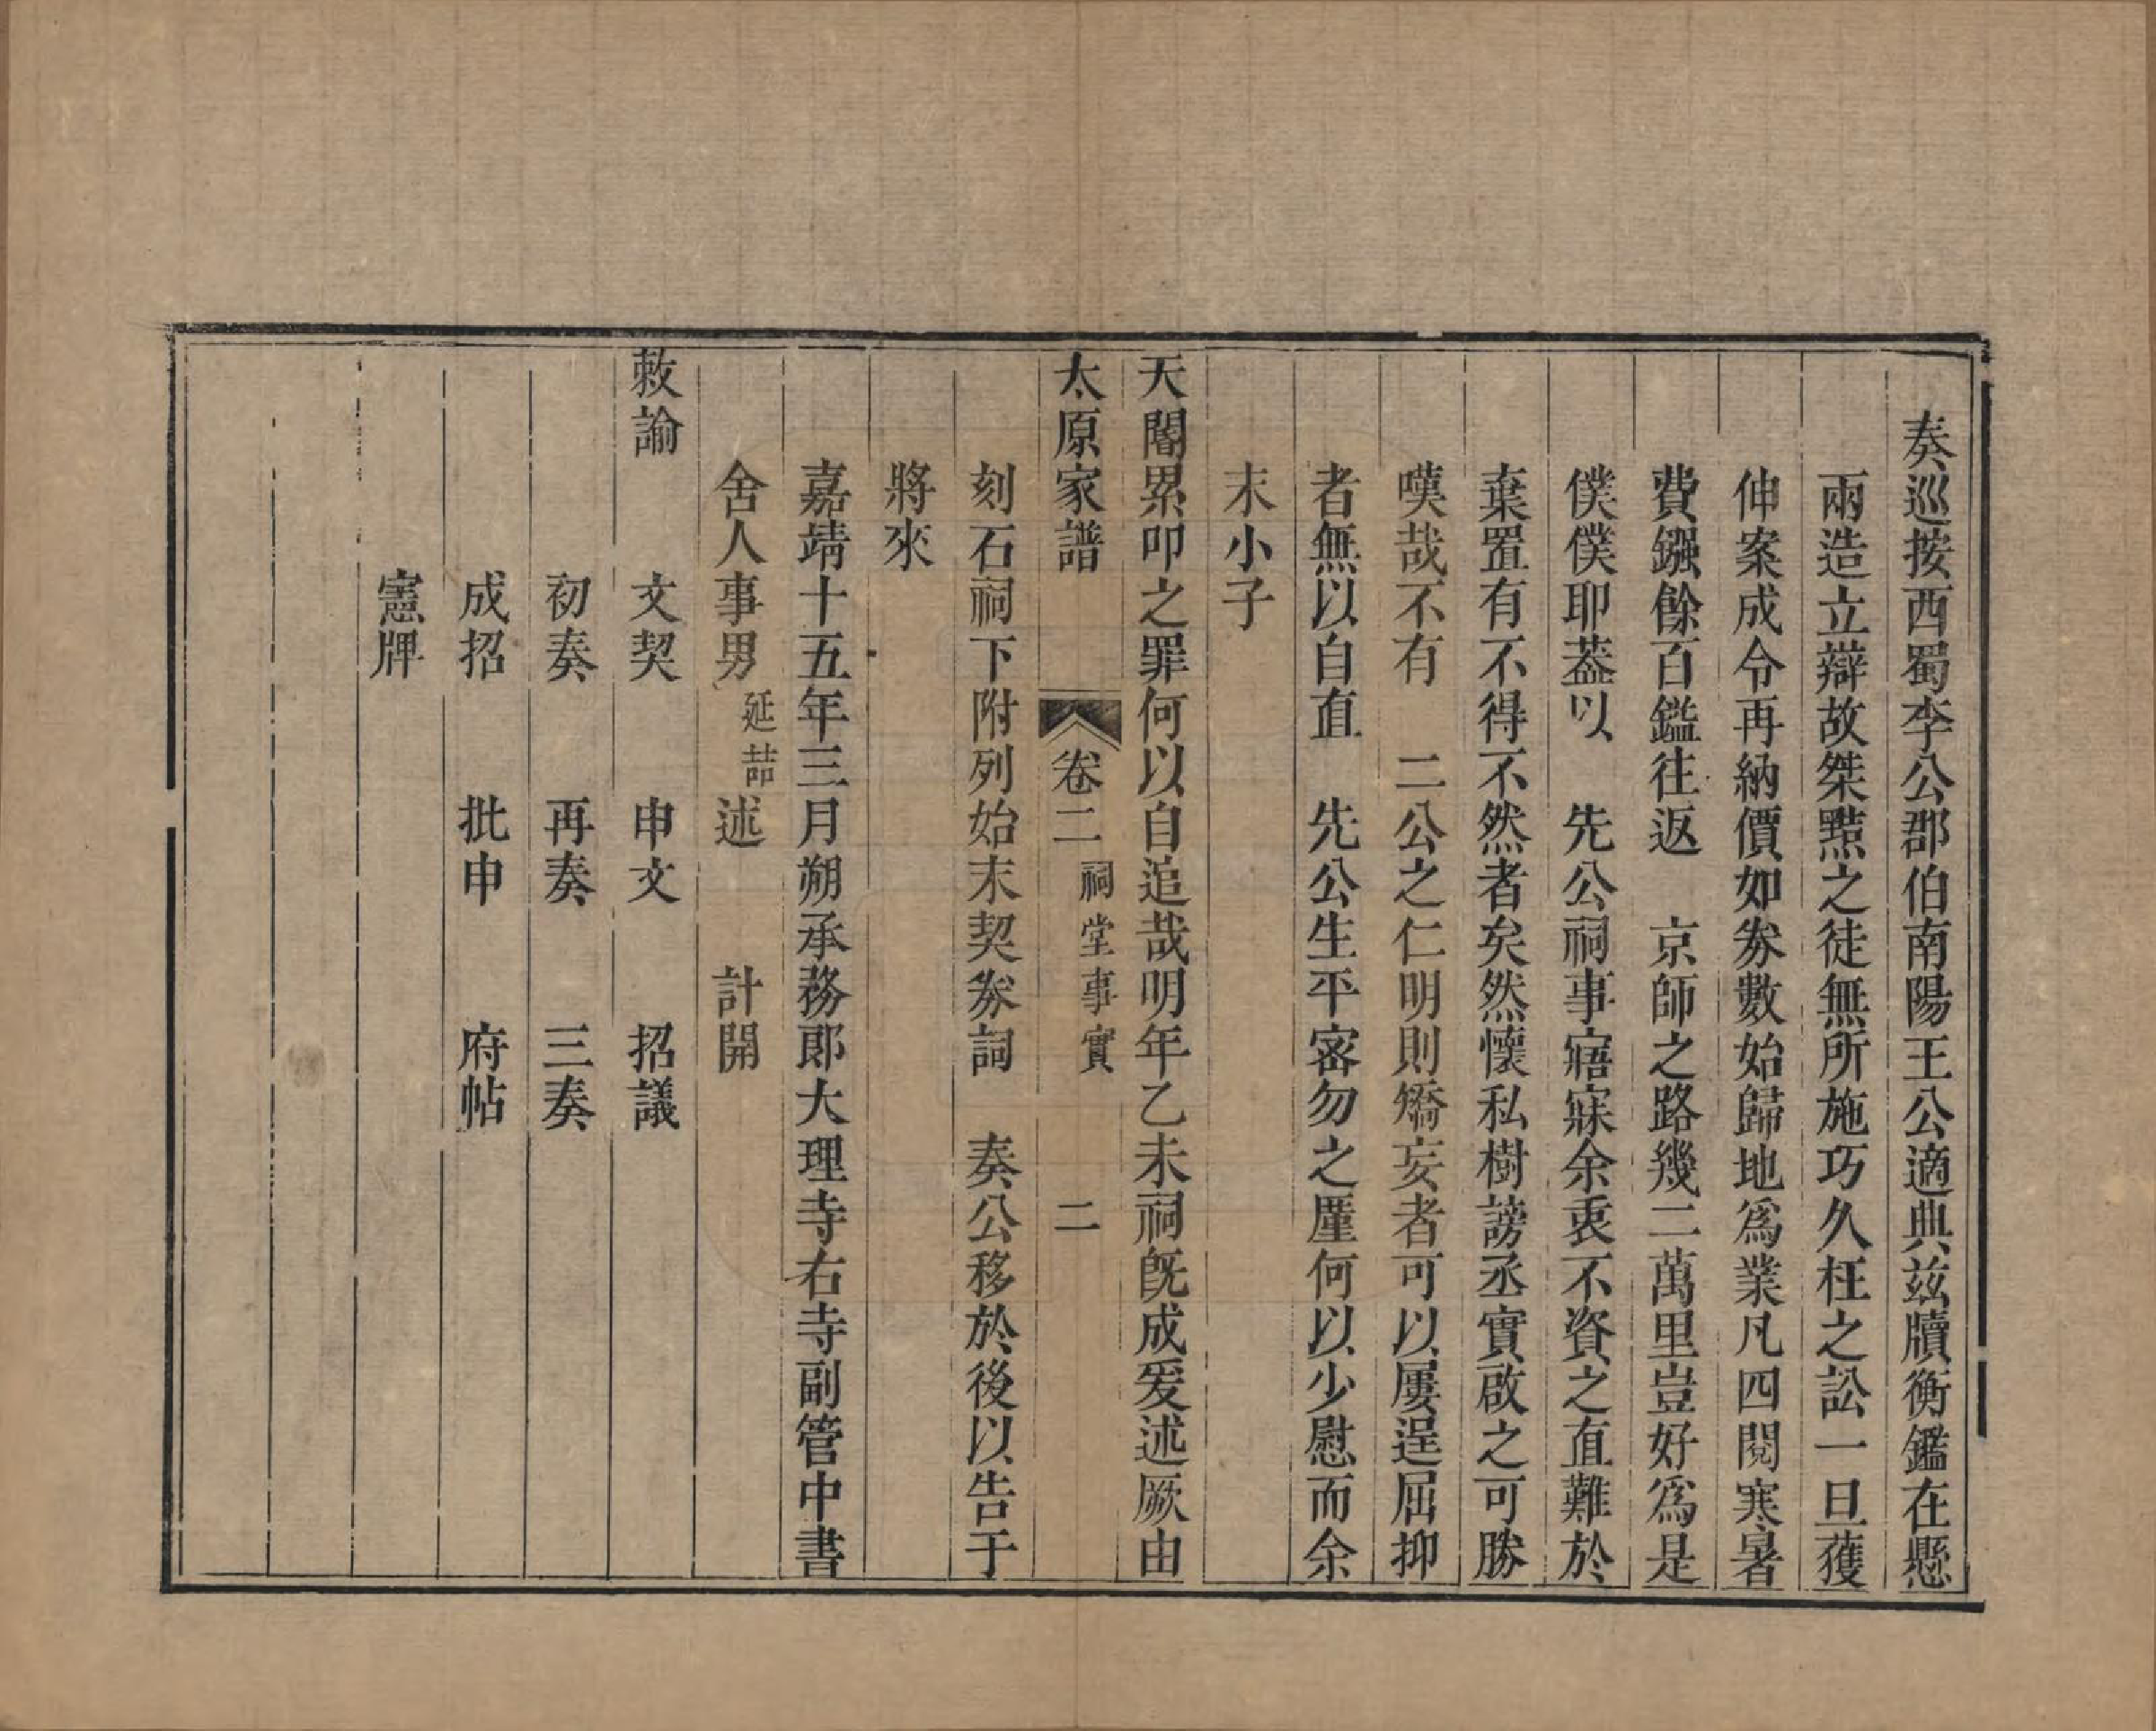 奏巡按西蜀李公郡伯南陽王公適典茲牘衡鑑在懸
兩造立辯故桀黠之徒無所施巧久枉之訟一旦獲
伸案成令再納價如劵數始歸地爲業凡四閱寒暑
費鏹餘百鑑往返　京師之路幾二萬里豈好爲是
僕僕耶葢以　先公祠事寤寐余衷不資之直難於
棄置有不得不然者矣然懷私樹謗丞實啟之可勝
嘆哉不有　二公之仁明則矯妄者可以屢逞屈抑
者無以自直　先公生平寍勿之厪何以少慰而余
末小子
天閽累叩之罪何以自追哉明年乙未祠旣成爰述厥由
太原家譜　卷二　祠堂事實　二
刻石祠下附列始末契劵詞　奏公移於後以告于
將來
嘉靖十五年三月朔承務郎大理寺右寺副管中書
舍人事男延喆述　計開
敕諭　文契　申文　招議
初奏　再奏　三奏
成招　批申　府帖
憲牌